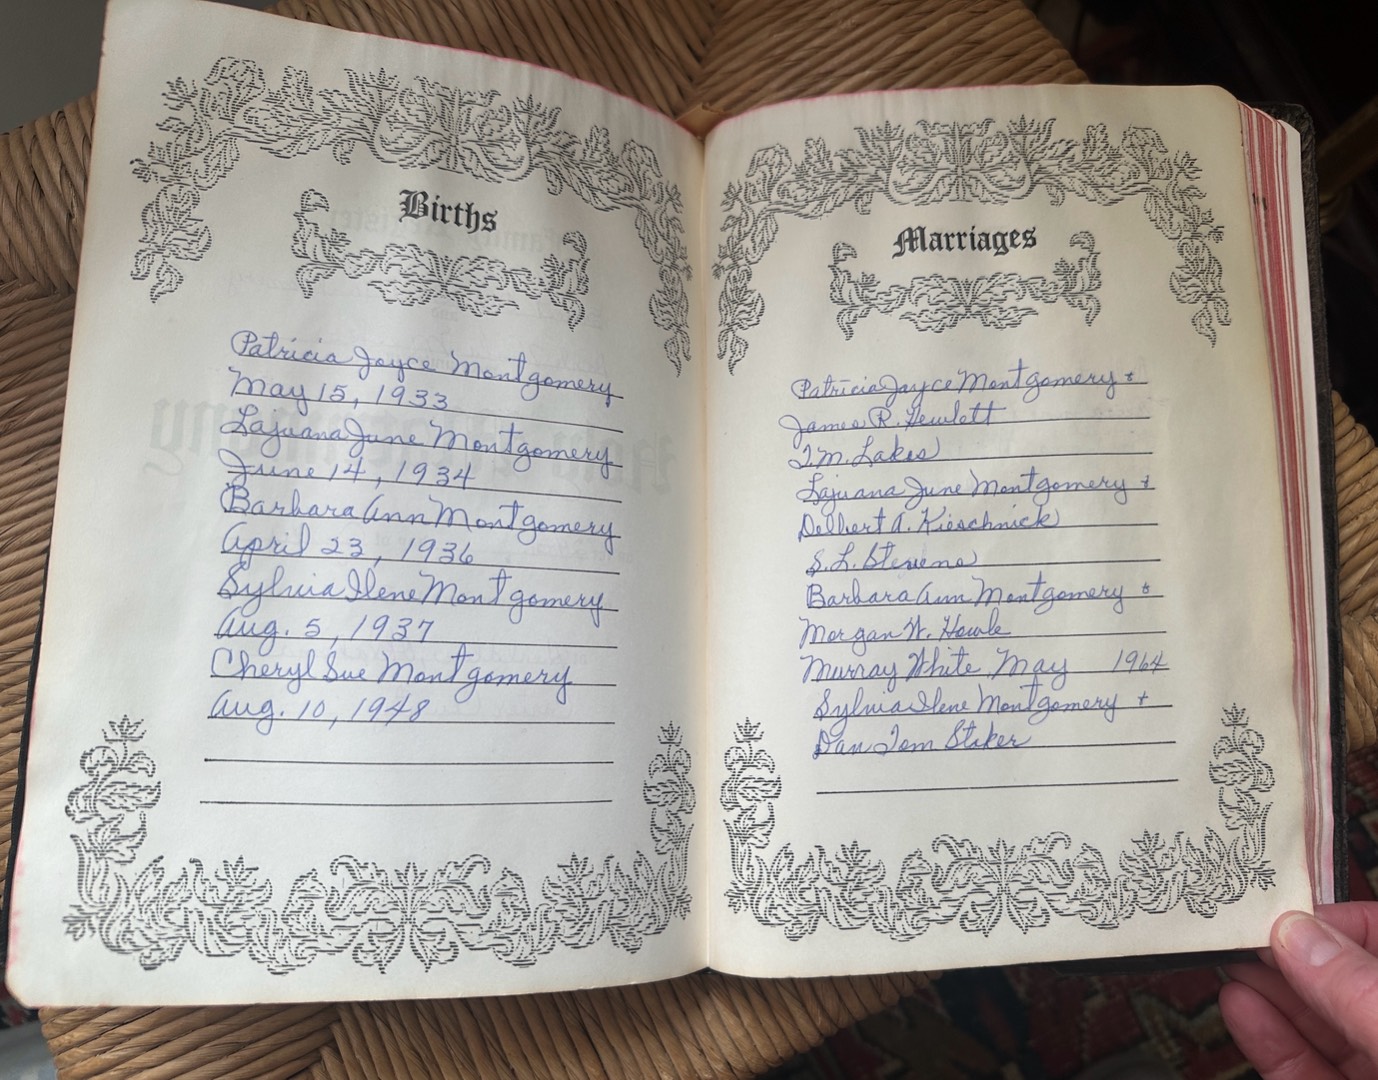 Births
Patricia Joyce Montgomery
May 15, 1933
Lajuana June Montgomery
June 14, 1934
Barbara Ann Montgomery
April 23, 1936
Sylvia Ilene Montgomery
Aug. 5, 1937
Cheryl Sue Montgomery
Aug. 10, 1948
Marriages
Patricia Joyce Montgomery +
James R. Hewlett
T.M. Lakes
Lajuana June Montgomery +
Delbert A. Kieschnick
S.L. Stevens
Barbara Ann Montgomery +
Morgan W. Howle
Murray White May 1964
Sylvia Ilene Montgomery +
Dan Tom Stiker